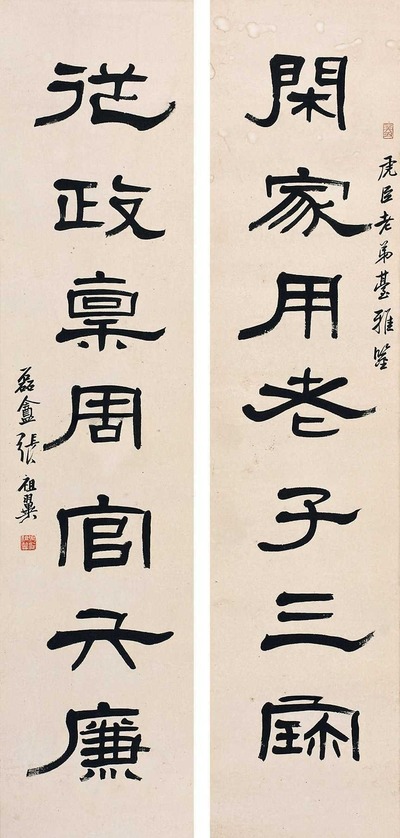 虎臣老弟臺雅鑒
閑家用老子三寶
從政稟周官六廉
磊盦張祖翼